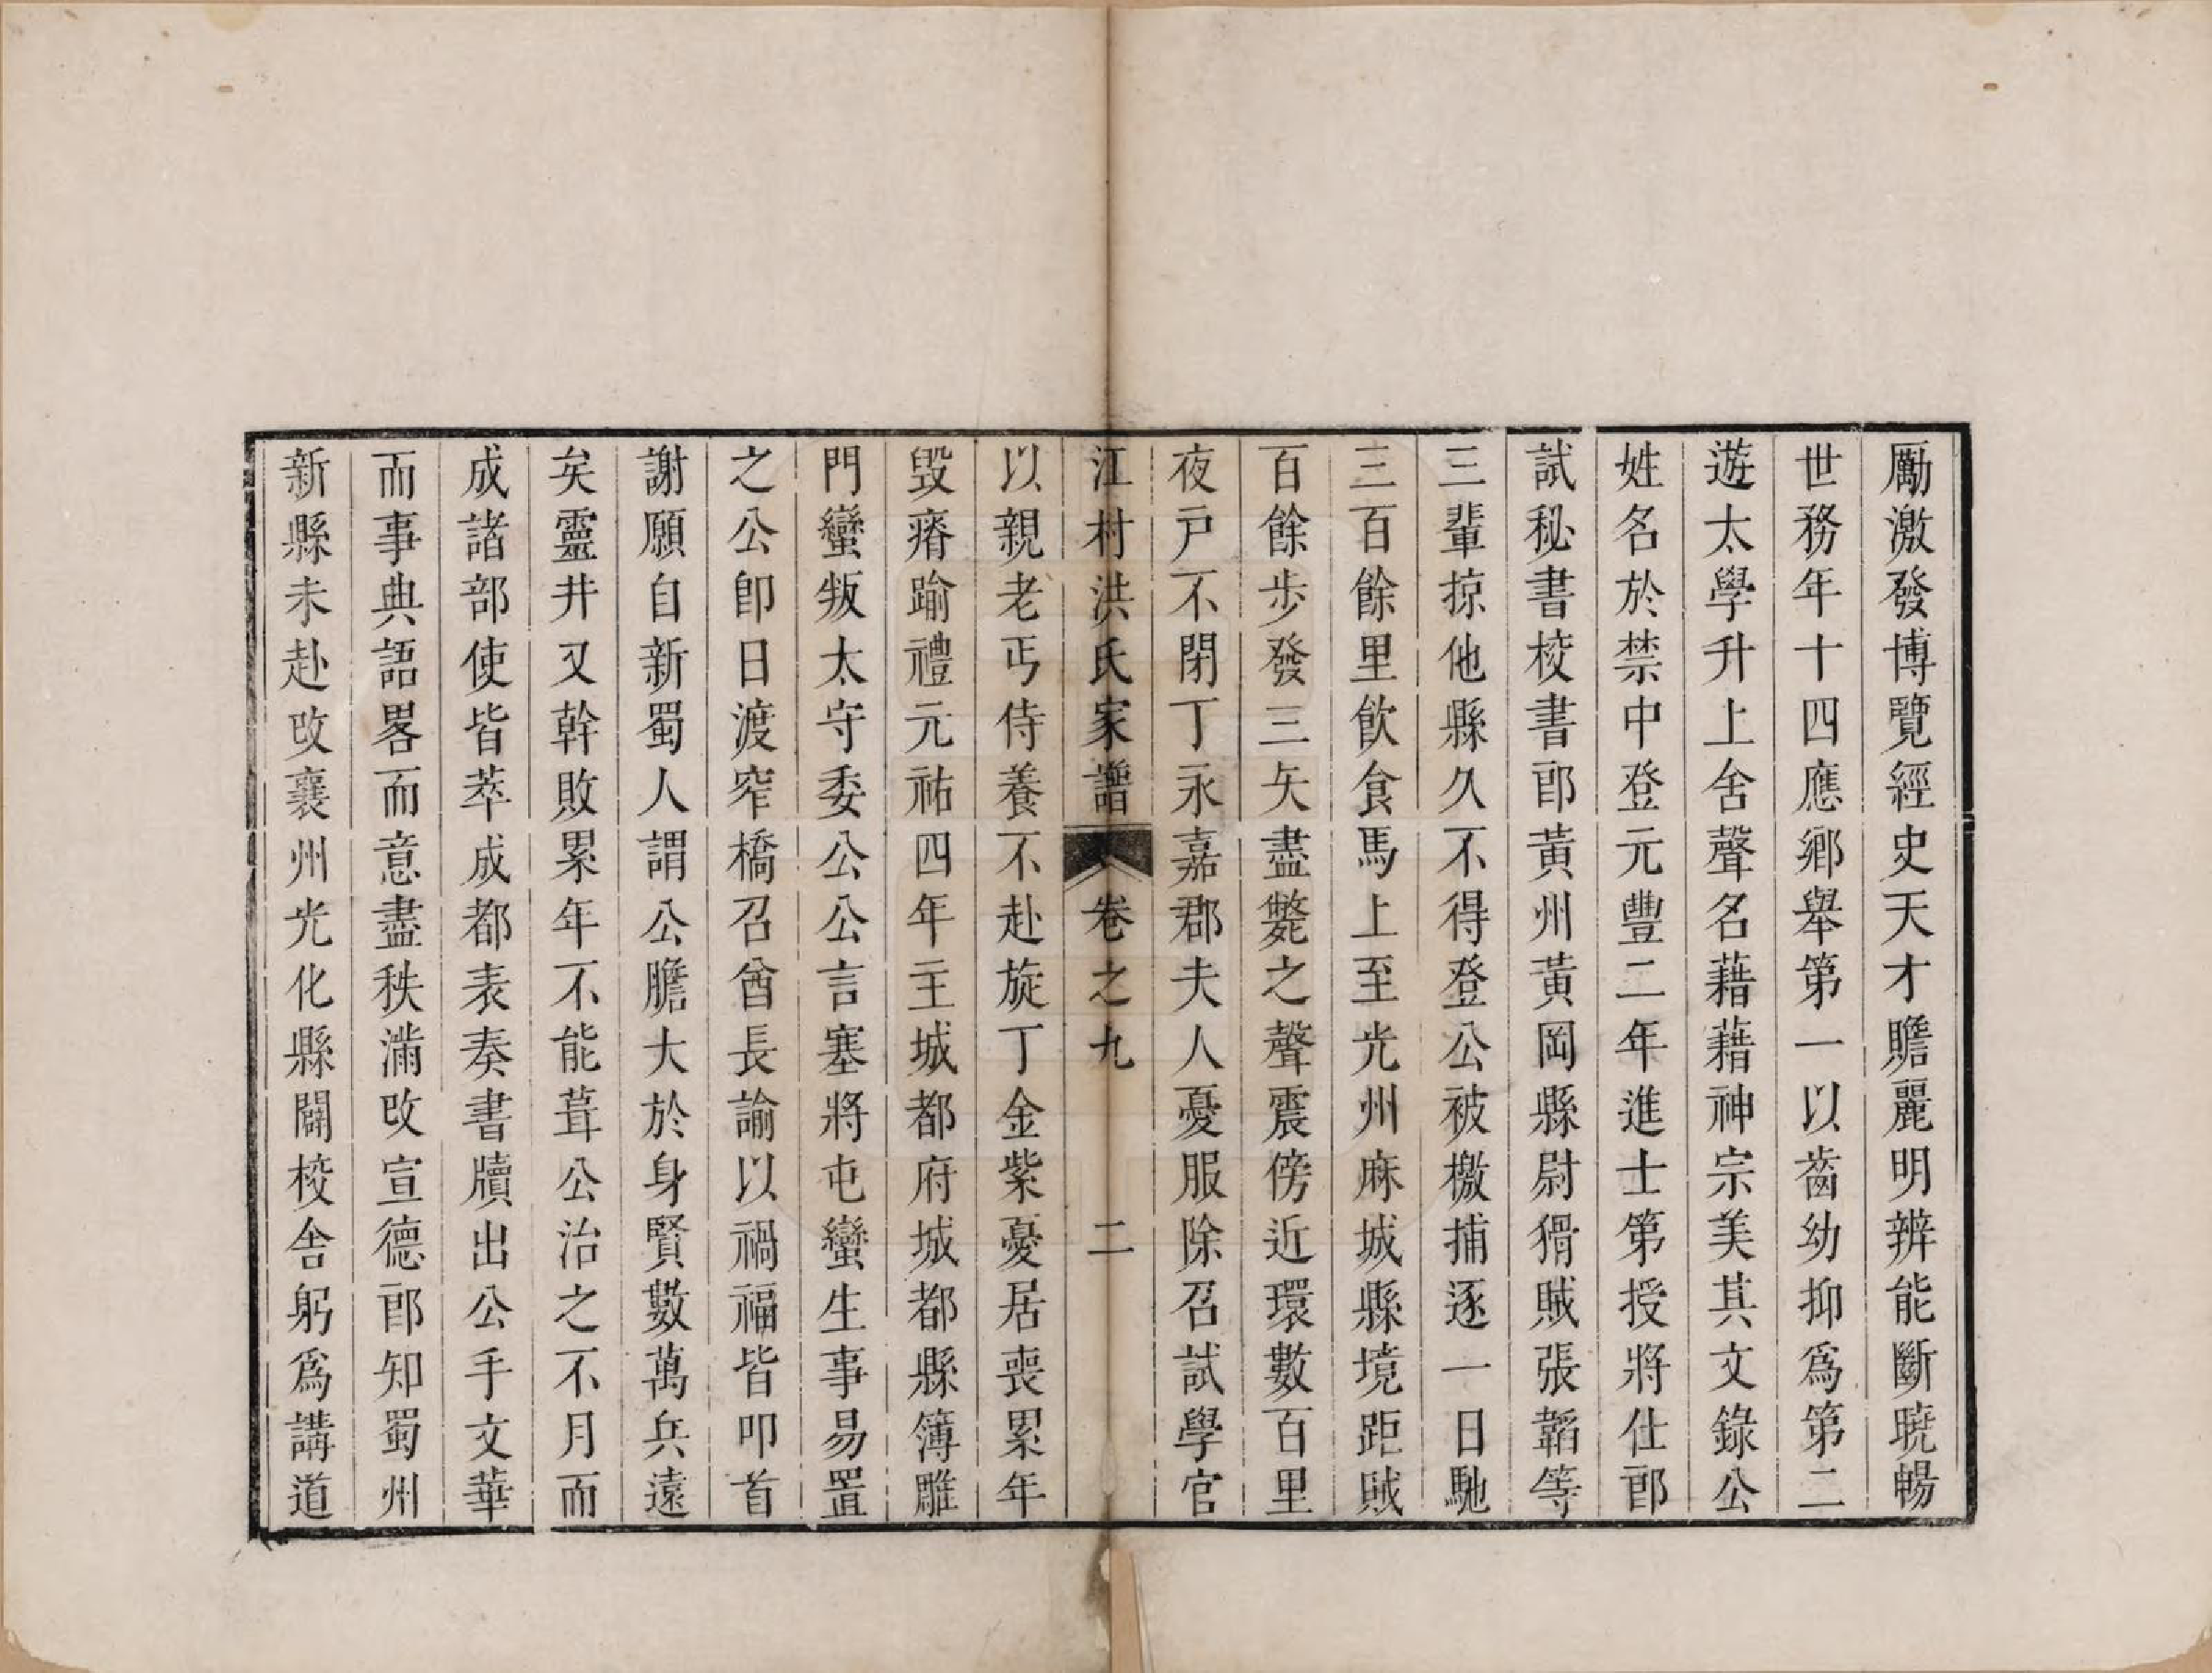 厲激發博覽經史天才贍麗明辨能斷曉暢
世務年十四應鄉舉第一以齒幼抑爲第二
遊太學升上舍聲名藉藉神宗美其文錄公
姓名於禁中登元豐二年進士第授將仕郎
試秘書校書郎黃州黃岡縣尉猾賊張韜等
三輩掠他縣久不得登公被檄捕逐一日馳
三百餘里飲食馬上至光州麻城縣境距賊
百餘步發三矢盡斃之聲震傍近環數百里
夜戸不閉丁永嘉郡夫人憂服除召試學官
江村洪氏家譜 卷之九 二
以親老丐侍養不赴旋丁金紫憂居喪累年
毀瘠踰禮元祐四年主城都府城都縣簿雕
門蠻叛太守委公公言塞將屯蠻生事易置
之公卽日渡窄橋召酋長諭以禍福皆叩首
謝願自新蜀人謂公膽大於身賢數萬兵遠
矣靈井又幹敗累年不能葺公治之不月而
成諸部使皆萃成都表奏書牘出公手文華
而事典語畧而意盡秩滿改宣德郎知蜀州
新縣未赴改襄州光化縣闢校舍躬爲講道